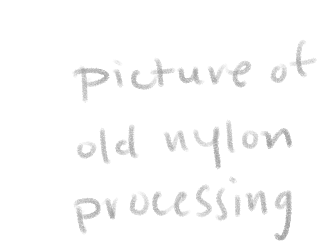 picture of
old nylon
processing